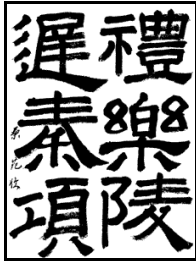 禮樂陵
遲秦項